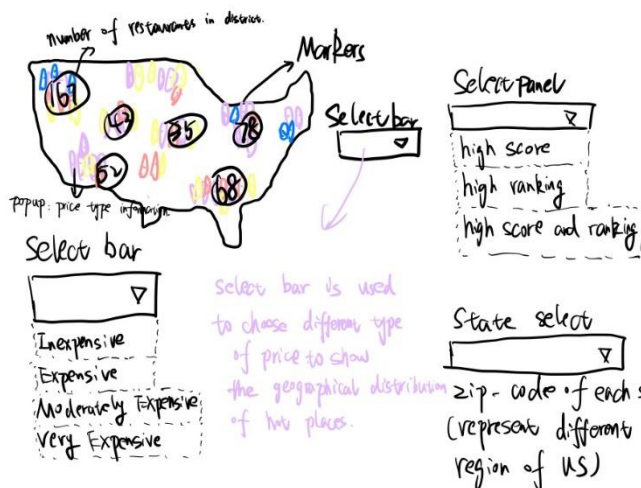 number of restaurants in district.
Markers
167
43
35
78
52
68
popup: price type information
Select bar
Select panel
high score
high ranking
high score and ranking
Select bar
Inexpensive
Expensive
Moderately Expensive
Very Expensive
select bar is used
to choose different type
of price to show
the geographical distribution
of hot places.
State select
zip-code of each s
(represent different
region of US)